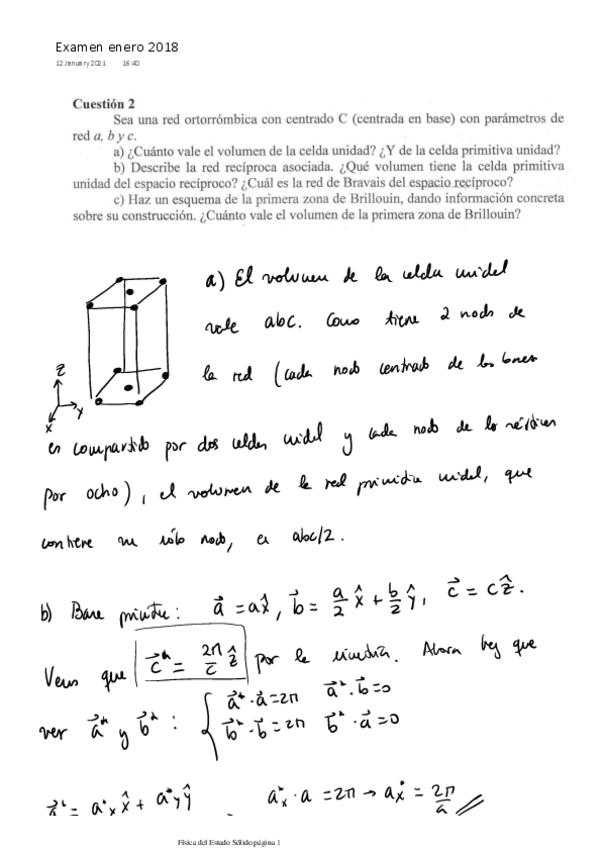 Examen enero 2018
12 January 2021 16:40
Cuestión 2
Sea una red ortorrómbica con centrado C (centrada en base) con parámetros de
red a, b y c.
a) ¿Cuánto vale el volumen de la celda unidad? ¿Y de la celda primitiva unidad?
b) Describe la red recíproca asociada. ¿Qué volumen tiene la celda primitiva
unidad del espacio recíproco? ¿Cuál es la red de Bravais del espacio recíproco?
c) Haz un esquema de la primera zona de Brillouin, dando información concreta
sobre su construcción. ¿Cuánto vale el volumen de la primera zona de Brillouin?
a) El volumen de la celda unidad
vale abc. Como tiene 2 nodos de
la red (cada nodo centrado de las bases
z
y
x
es compartido por dos celdas unidad y cada nodo de los vértices
por ocho), el volumen de la red primitiva unidad, que
contiene un sólo nodo, es abc/2.
b) Base primitiva: a⃗ = a x̂, b⃗ = a/2 x̂ + b/2 ŷ, c⃗ = c ẑ.
Vemos que c⃗* = 2π/c ẑ por la simetría. Ahora hay que
ver a⃗* y b⃗*: { a⃗*·a⃗ = 2π a⃗*·b⃗ = 0
b⃗*·b⃗ = 2π b⃗*·a⃗ = 0
a⃗* = a*x x̂ + a*y ŷ . a*x · a = 2π → a*x = 2π/a
Física del Estado Sólido página 1